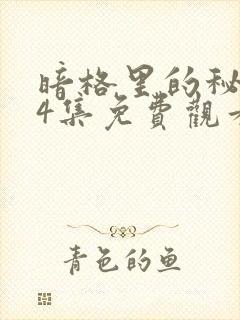 暗格里的秘
4集免費觀
青色的鱼